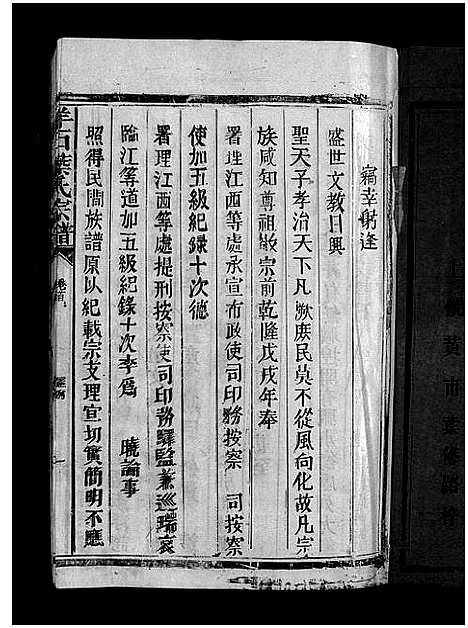 竊幸躬逢
盛世文教日興
聖天子孝治天下凡厥庶民莫不從風向化故凡宗
族咸知尊祖敬宗前乾隆戊戌年奉
署理江西等處承宣布政使司印務按察　司按察
使加五級紀錄十次德
署理江西等處提刑按察使司印務驛監兼巡瑞袁
臨江等道加五級紀錄十次李爲　曉諭事
照得民間族譜原以紀載宗支理宜切實簡明不應
羊石葉氏宗譜
卷首
一